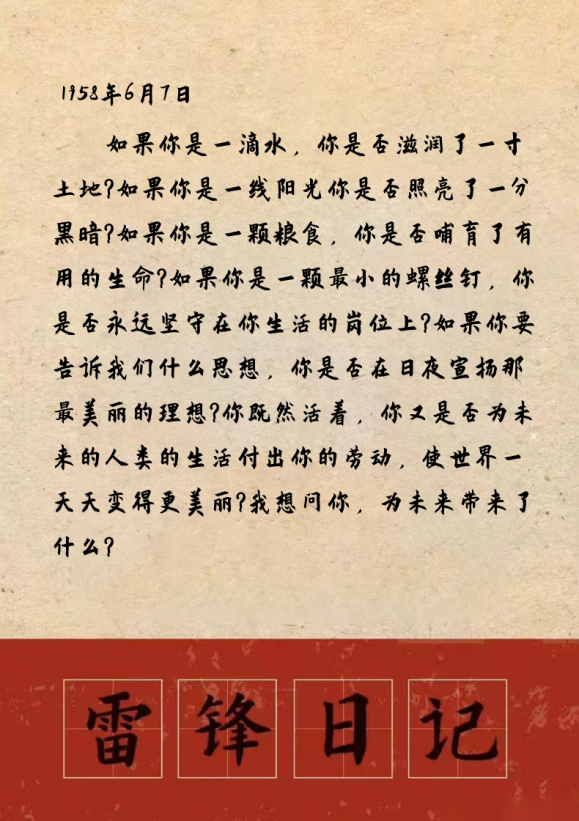 1958年6月7日
如果你是一滴水，你是否滋润了一寸
土地?如果你是一线阳光你是否照亮了一分
黑暗?如果你是一颗粮食，你是否哺育了有
用的生命?如果你是一颗最小的螺丝钉，你
是否永远坚守在你生活的岗位上?如果你要
告诉我们什么思想，你是否在日夜宣扬那
最美丽的理想?你既然活着，你又是否为未
来的人类的生活付出你的劳动，使世界一
天天变得更美丽?我想问你，为未来带来了
什么?
雷锋日记